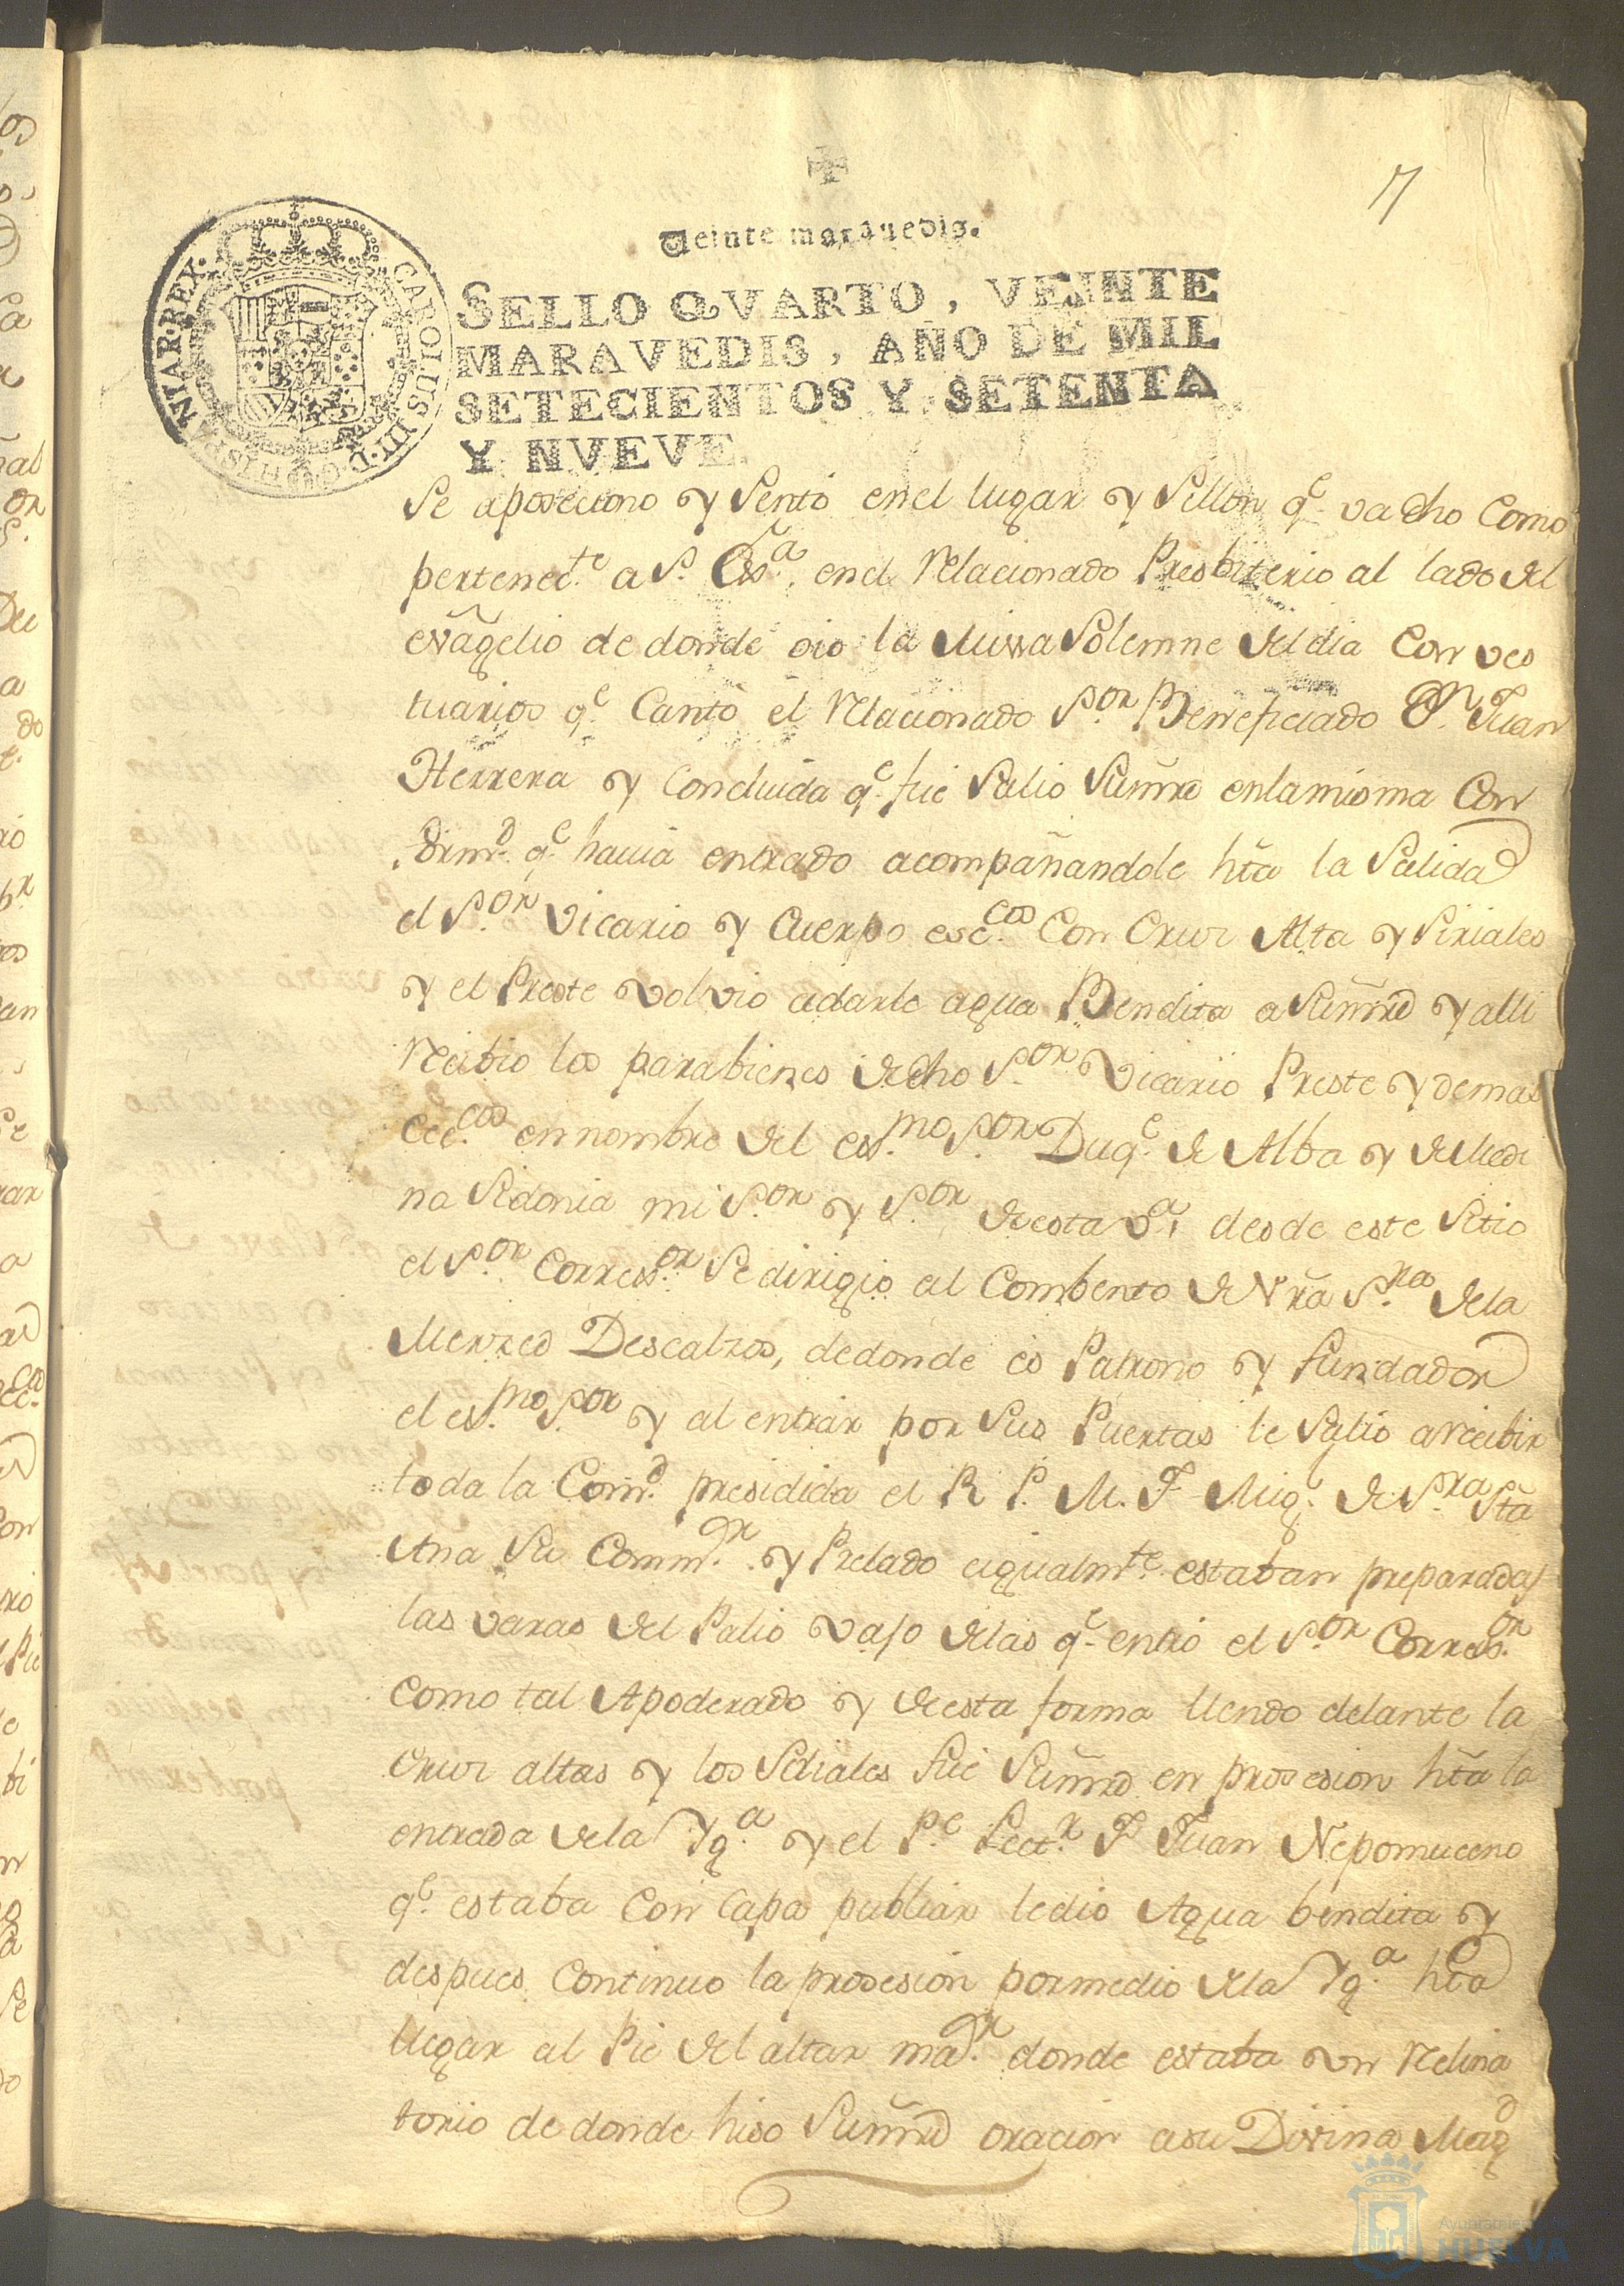 17
Veinte maravedis.
SELLO QVARTO, VEINTE
MARAVEDIS, AÑO DE MIL
SETECIENTOS Y SETENTA
Y NVEVE.
CAROLUS III D G HISPANIAR REX
Se aposeciono y Sentó enel lugar y Sillon q.e va dho Como
pertenec.te a S. Exs.a, enel Relacionado Presbiterio al lado del
evãgelio de donde oio la Missa Solemne del dia Con ves
tuarios q.e Cantò el Relacionado S.or Beneficiado D.n Juan
Herrera y Concluida q.e fue Salio Sumrd enlamisma Con
formd. q.e havia entrado acompañandole hta la Salida
el S.or Vicario y Cuerpo esc.cos Con Cruz Alta y Siriales
y el Preste volvio adarle agua Bendita a Sumrd y alli
Recibio los parabienes dedho S.or Vicario Preste y demas
ecc.cos ennombre del es.mo S.or Duq.e de Alba y deMedi
na Sidonia mi S.or y S.or deesta V.a, desde este Sitio
el S.or Corres.or Se dirigio al Combento de Nrã S.ra dela
Merzed Descalzos, dedonde es Patrono y fundador
el es.mo S.or y al entrar por Sus Puertas le Salio arecibir
toda la Comd. presidida el R P. M. F Mig.l de S.ra Stã
Ana Su Comm.or y Prelado eigualm.te estaban preparadas
las varas del Palio vajo delas q.e entró el S.or Corres.or
Como tal Apoderado y deesta forma llendo delante la
Cruz altas y los Seliales fue Sumrd en prosesion htã la
entrada dela Yg.a y el P.e Lect.r F Juan Nepomuceno
q.e estaba Con Capa publiar ledio Agua bendita y
despues Continuo la prosesion pormedio dela Yg.a hta
llegar al Pie del altar ma.or donde estaba vn Relina
torio de donde hiso Sumrd oracion asu Divina Magd
Ayuntamiento de
HUELVA